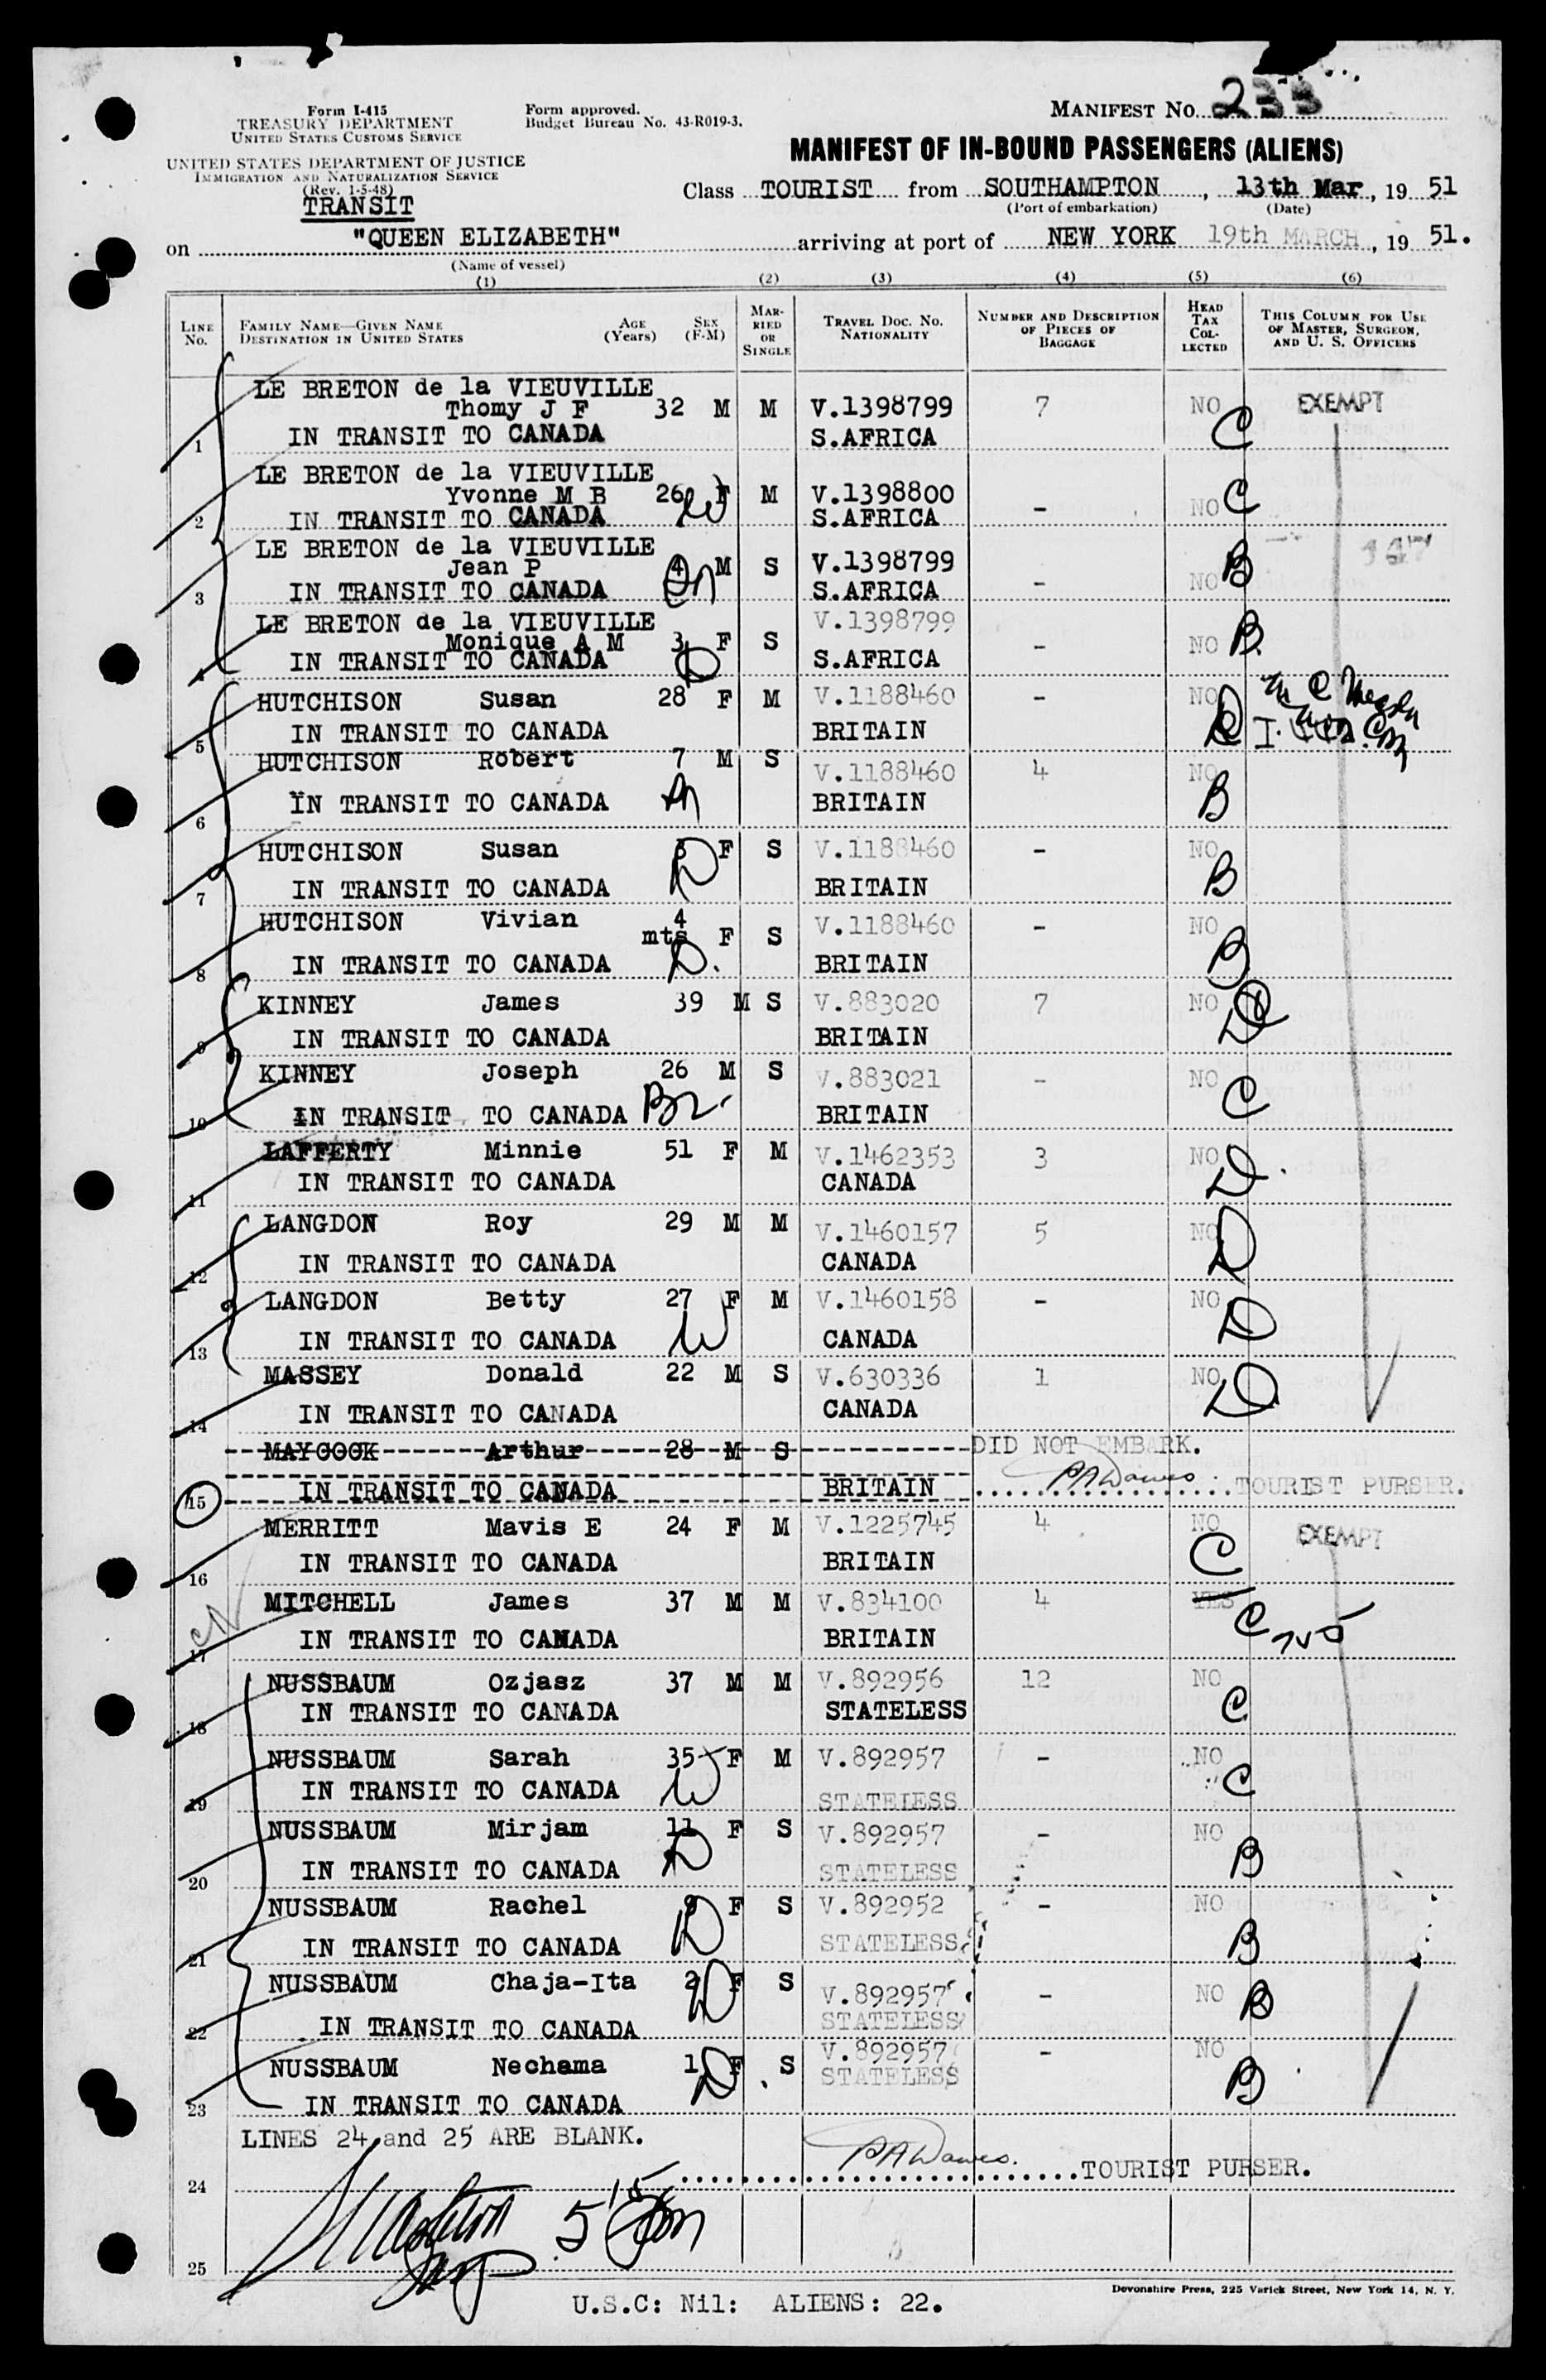 Form I-415
TREASURY DEPARTMENT
UNITED STATES CUSTOMS SERVICE
UNITED STATES DEPARTMENT OF JUSTICE
IMMIGRATION AND NATURALIZATION SERVICE
(Rev. 1-5-48)
TRANSIT
Form approved.
Budget Bureau No. 43-R019-3.
MANIFEST No. 233
MANIFEST OF IN-BOUND PASSENGERS (ALIENS)
Class TOURIST from SOUTHAMPTON, 13th Mar, 19 51
(Port of embarkation) (Date)
on "QUEEN ELIZABETH" arriving at port of NEW YORK 19th MARCH, 19 51.
(Name of vessel)
(1) (2) (3) (4) (5) (6)
LINE No. FAMILY NAME—GIVEN NAME DESTINATION IN UNITED STATES AGE (Years) SEX (F-M) MARRIED OR SINGLE TRAVEL DOC. NO. NATIONALITY NUMBER AND DESCRIPTION OF PIECES OF BAGGAGE HEAD TAX COLLECTED THIS COLUMN FOR USE OF MASTER, SURGEON, AND U. S. OFFICERS
LE BRETON de la VIEUVILLE
Thomy J F 32 M M V.1398799 7 NO EXEMPT
1 IN TRANSIT TO CANADA S.AFRICA C
LE BRETON de la VIEUVILLE
Yvonne M B 26 F M V.1398800 - NO C
2 IN TRANSIT TO CANADA W S.AFRICA
LE BRETON de la VIEUVILLE 147
Jean P 4 M S V.1398799 - NO B
3 IN TRANSIT TO CANADA S.AFRICA
LE BRETON de la VIEUVILLE V.1398799
Monique A M 3 F S - NO B.
4 IN TRANSIT TO CANADA D S.AFRICA
HUTCHISON Susan 28 F M V.1188460 - NO
5 IN TRANSIT TO CANADA BRITAIN
HUTCHISON Robert 7 M S V.1188460 4 NO
6 IN TRANSIT TO CANADA BRITAIN B
HUTCHISON Susan F S V.1188460 - NO
7 IN TRANSIT TO CANADA D BRITAIN B
HUTCHISON Vivian 4 mts F S V.1188460 - NO
8 IN TRANSIT TO CANADA D. BRITAIN B
KINNEY James 39 M S V.883020 7 NO
9 IN TRANSIT TO CANADA BRITAIN
KINNEY Joseph 26 M S V.883021 - NO
10 IN TRANSIT TO CANADA Br. BRITAIN C
LAFFERTY Minnie 51 F M V.1462353 3 NO
11 IN TRANSIT TO CANADA CANADA D.
LANGDON Roy 29 M M V.1460157 5 NO
12 IN TRANSIT TO CANADA CANADA D
LANGDON Betty 27 F M V.1460158 - NO
13 IN TRANSIT TO CANADA W CANADA D
MASSEY Donald 22 M S V.630336 1 NO
14 IN TRANSIT TO CANADA CANADA D
MAYCOCK Arthur 28 M S DID NOT EMBARK.
15 IN TRANSIT TO CANADA BRITAIN P A Dawes TOURIST PURSER.
MERRITT Mavis E 24 F M V.1225745 4 NO EXEMPT
16 IN TRANSIT TO CANADA BRITAIN C
MITCHELL James 37 M M V.834100 4 YES
17 IN TRANSIT TO CANADA BRITAIN C
NUSSBAUM Ozjasz 37 M M V.892956 12 NO
18 IN TRANSIT TO CANADA STATELESS C
NUSSBAUM Sarah 35 F M V.892957 - NO
19 IN TRANSIT TO CANADA W STATELESS C
NUSSBAUM Mirjam 11 F S V.892957 - NO
20 IN TRANSIT TO CANADA D STATELESS B
NUSSBAUM Rachel F S V.892952 - NO
21 IN TRANSIT TO CANADA D STATELESS B
NUSSBAUM Chaja-Ita 2 F S V.892957 - NO B
22 IN TRANSIT TO CANADA D STATELESS
NUSSBAUM Nechama 1 F S V.892957 - NO
23 IN TRANSIT TO CANADA D STATELESS B
LINES 24 and 25 ARE BLANK.
24 P A Dawes. TOURIST PURSER.
25
Devonshire Press, 225 Varick Street, New York 14, N. Y.
U.S.C: Nil: ALIENS: 22.